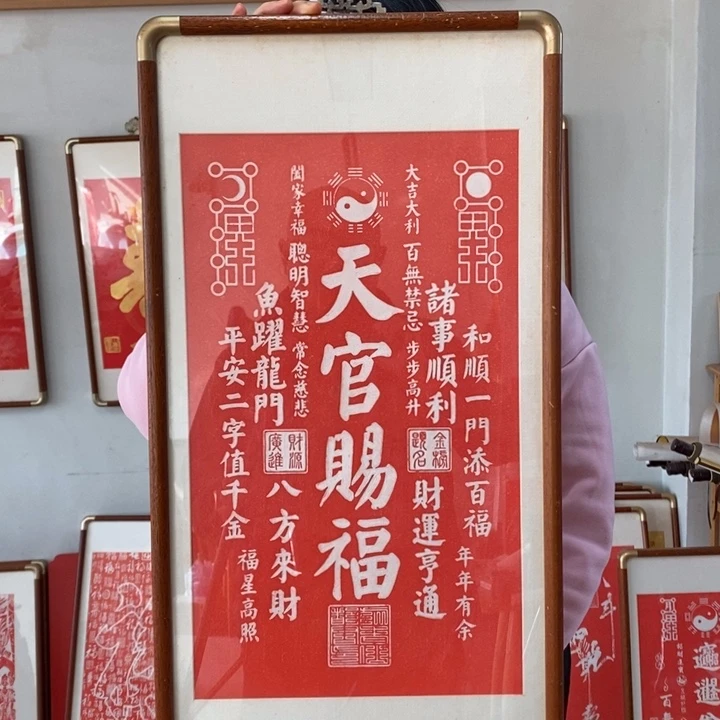 和順一門添百福
年年有餘
諸事順利
金榜題名
財運亨通
大吉大利
百無禁忌
步步高升
天官賜福
闔家幸福
聰明智慧
常念慈悲
魚躍龍門
財源廣進
八方來財
平安二字值千金
福星高照